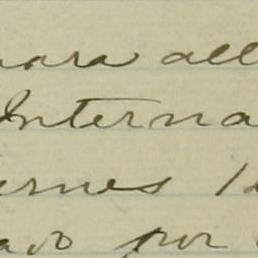 para all
Interna
ernes 1
avo por